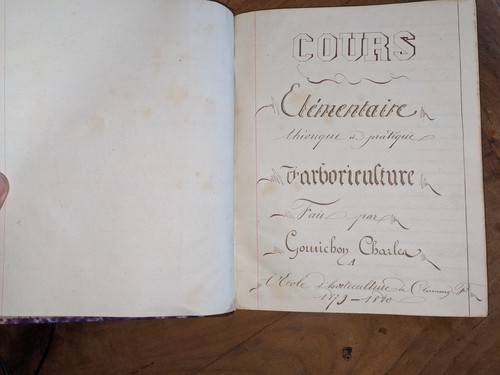 COURS
Elémentaire
théorique & pratique
D'arboriculture
Fait par
Charles
A
l'Ecole d'horticulture de
1879-1880